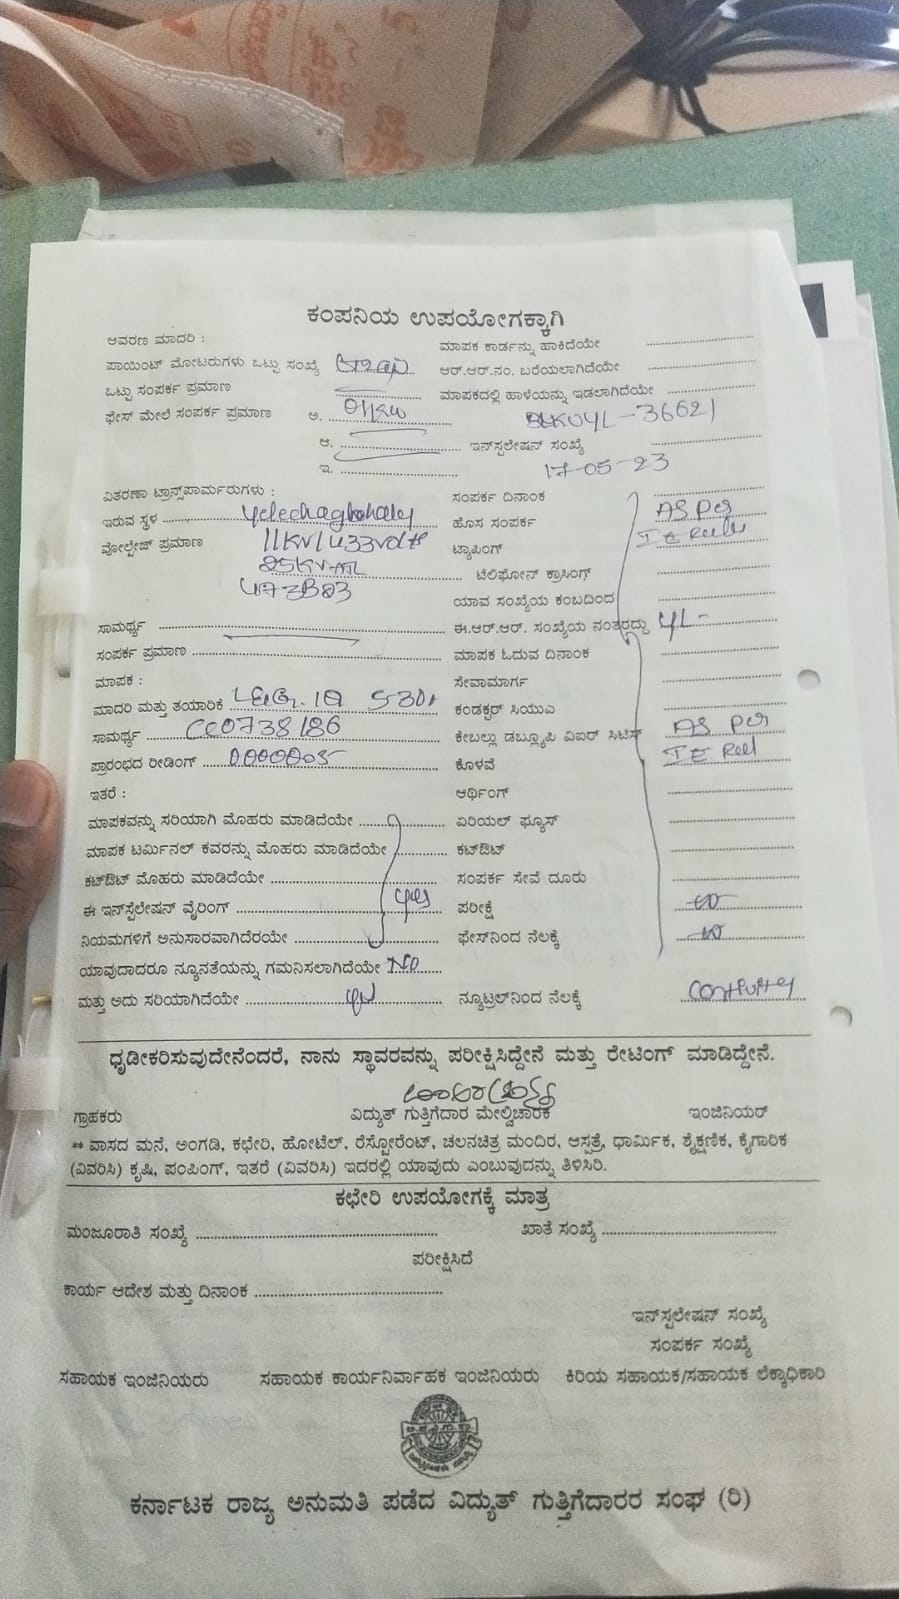 ಕಂಪನಿಯ ಉಪಯೋಗಕ್ಕಾಗಿ
ಆವರಣ ಮಾದರಿ :
ಮಾಪಕ ಕಾರ್ಡನ್ನು ಹಾಕಿದೆಯೇ
ಪಾಯಿಂಟ್ ಮೋಟರುಗಳು ಒಟ್ಟು ಸಂಖ್ಯೆ
ಆರ್.ಆರ್.ನಂ. ಬರೆಯಲಾಗಿದೆಯೇ
ಒಟ್ಟು ಸಂಪರ್ಕ ಪ್ರಮಾಣ
ಮಾಪಕದಲ್ಲಿ ಹಾಳೆಯನ್ನು ಇಡಲಾಗಿದೆಯೇ
ಫೇಸ್ ಮೇಲೆ ಸಂಪರ್ಕ ಪ್ರಮಾಣ ಅ. 01KW
-36621
ಆ.
ಇನ್‌ಸ್ಪಲೇಷನ್ ಸಂಖ್ಯೆ
ಇ.
17-05-23
ವಿತರಣಾ ಟ್ರಾನ್ಸ್‌ಪಾರ್ಮರುಗಳು :
ಸಂಪರ್ಕ ದಿನಾಂಕ
ಇರುವ ಸ್ಥಳ
ಹೊಸ ಸಂಪರ್ಕ AS per
ವೋಲ್ಟೇಜ್ ಪ್ರಮಾಣ 11KV/433volt
ಟ್ಯಾಪಿಂಗ್ IE
25KV
ಟೆಲಿಫೋನ್ ಕ್ರಾಸಿಂಗ್
ಯಾವ ಸಂಖ್ಯೆಯ ಕಂಬದಿಂದ
ಸಾಮರ್ಥ್ಯ
ಈ.ಆರ್.ಆರ್. ಸಂಖ್ಯೆಯ ನಂತರದ್ದು YL-
ಸಂಪರ್ಕ ಪ್ರಮಾಣ
ಮಾಪಕ ಓದುವ ದಿನಾಂಕ
ಮಾಪಕ :
ಸೇವಾಮಾರ್ಗ
ಮಾದರಿ ಮತ್ತು ತಯಾರಿಕೆ
ಕಂಡಕ್ಟರ್ ಸಿಯುಎ
ಸಾಮರ್ಥ್ಯ CC0738186
ಕೇಬಲ್ಲು ಡಬ್ಲ್ಯೂಪಿ ವಿಐರ್ ಸಿಟಿಸ್ AS per
ಪ್ರಾರಂಭದ ರೀಡಿಂಗ್
ಕೊಳವೆ IE
ಇತರೆ :
ಆರ್ಥಿಂಗ್
ಮಾಪಕವನ್ನು ಸರಿಯಾಗಿ ಮೊಹರು ಮಾಡಿದೆಯೇ
ಏರಿಯಲ್ ಫ್ಯೂಸ್
ಮಾಪಕ ಟರ್ಮಿನಲ್ ಕವರನ್ನು ಮೊಹರು ಮಾಡಿದೆಯೇ
ಕಟ್‌ಔಟ್
ಕಟ್‌ಔಟ್ ಮೊಹರು ಮಾಡಿದೆಯೇ
ಸಂಪರ್ಕ ಸೇವೆ ದೂರು
ಈ ಇನ್‌ಸ್ಪೆಲೇಷನ್ ವೈರಿಂಗ್ yes
ಪರೀಕ್ಷೆ
ನಿಯಮಗಳಿಗೆ ಅನುಸಾರವಾಗಿದೆರಯೇ
ಫೇಸ್‌ನಿಂದ ನೆಲಕ್ಕೆ
ಯಾವುದಾದರೂ ನ್ಯೂನತೆಯನ್ನು ಗಮನಿಸಲಾಗಿದೆಯೇ No
ಮತ್ತು ಅದು ಸರಿಯಾಗಿದೆಯೇ
ನ್ಯೂಟ್ರಲ್‌ನಿಂದ ನೆಲಕ್ಕೆ
ಧೃಡೀಕರಿಸುವುದೇನೆಂದರೆ, ನಾನು ಸ್ಥಾವರವನ್ನು ಪರೀಕ್ಷಿಸಿದ್ದೇನೆ ಮತ್ತು ರೇಟಿಂಗ್ ಮಾಡಿದ್ದೇನೆ.
ಗ್ರಾಹಕರು ವಿದ್ಯುತ್ ಗುತ್ತಿಗೆದಾರ ಮೇಲ್ವಿಚಾರಕ ಇಂಜಿನಿಯರ್
** ವಾಸದ ಮನೆ, ಅಂಗಡಿ, ಕಛೇರಿ, ಹೋಟೆಲ್, ರೆಸ್ಟೋರೆಂಟ್, ಚಲನಚಿತ್ರ ಮಂದಿರ, ಆಸ್ಪತ್ರೆ, ಧಾರ್ಮಿಕ, ಶೈಕ್ಷಣಿಕ, ಕೈಗಾರಿಕ
(ವಿವರಿಸಿ) ಕೃಷಿ, ಪಂಪಿಂಗ್, ಇತರೆ (ವಿವರಿಸಿ) ಇದರಲ್ಲಿ ಯಾವುದು ಎಂಬುವುದನ್ನು ತಿಳಿಸಿರಿ.
ಕಛೇರಿ ಉಪಯೋಗಕ್ಕೆ ಮಾತ್ರ
ಮಂಜೂರಾತಿ ಸಂಖ್ಯೆ
ಖಾತೆ ಸಂಖ್ಯೆ
ಪರೀಕ್ಷಿಸಿದೆ
ಕಾರ್ಯ ಆದೇಶ ಮತ್ತು ದಿನಾಂಕ
ಇನ್‌ಸ್ಪಲೇಷನ್ ಸಂಖ್ಯೆ
ಸಂಪರ್ಕ ಸಂಖ್ಯೆ
ಸಹಾಯಕ ಇಂಜಿನಿಯರು ಸಹಾಯಕ ಕಾರ್ಯನಿರ್ವಾಹಕ ಇಂಜಿನಿಯರು ಕಿರಿಯ ಸಹಾಯಕ/ಸಹಾಯಕ ಲೆಕ್ಕಾಧಿಕಾರಿ
ಕರ್ನಾಟಕ ರಾಜ್ಯ ಅನುಮತಿ ಪಡೆದ ವಿದ್ಯುತ್ ಗುತ್ತಿಗೆದಾರರ ಸಂಘ (ರಿ)